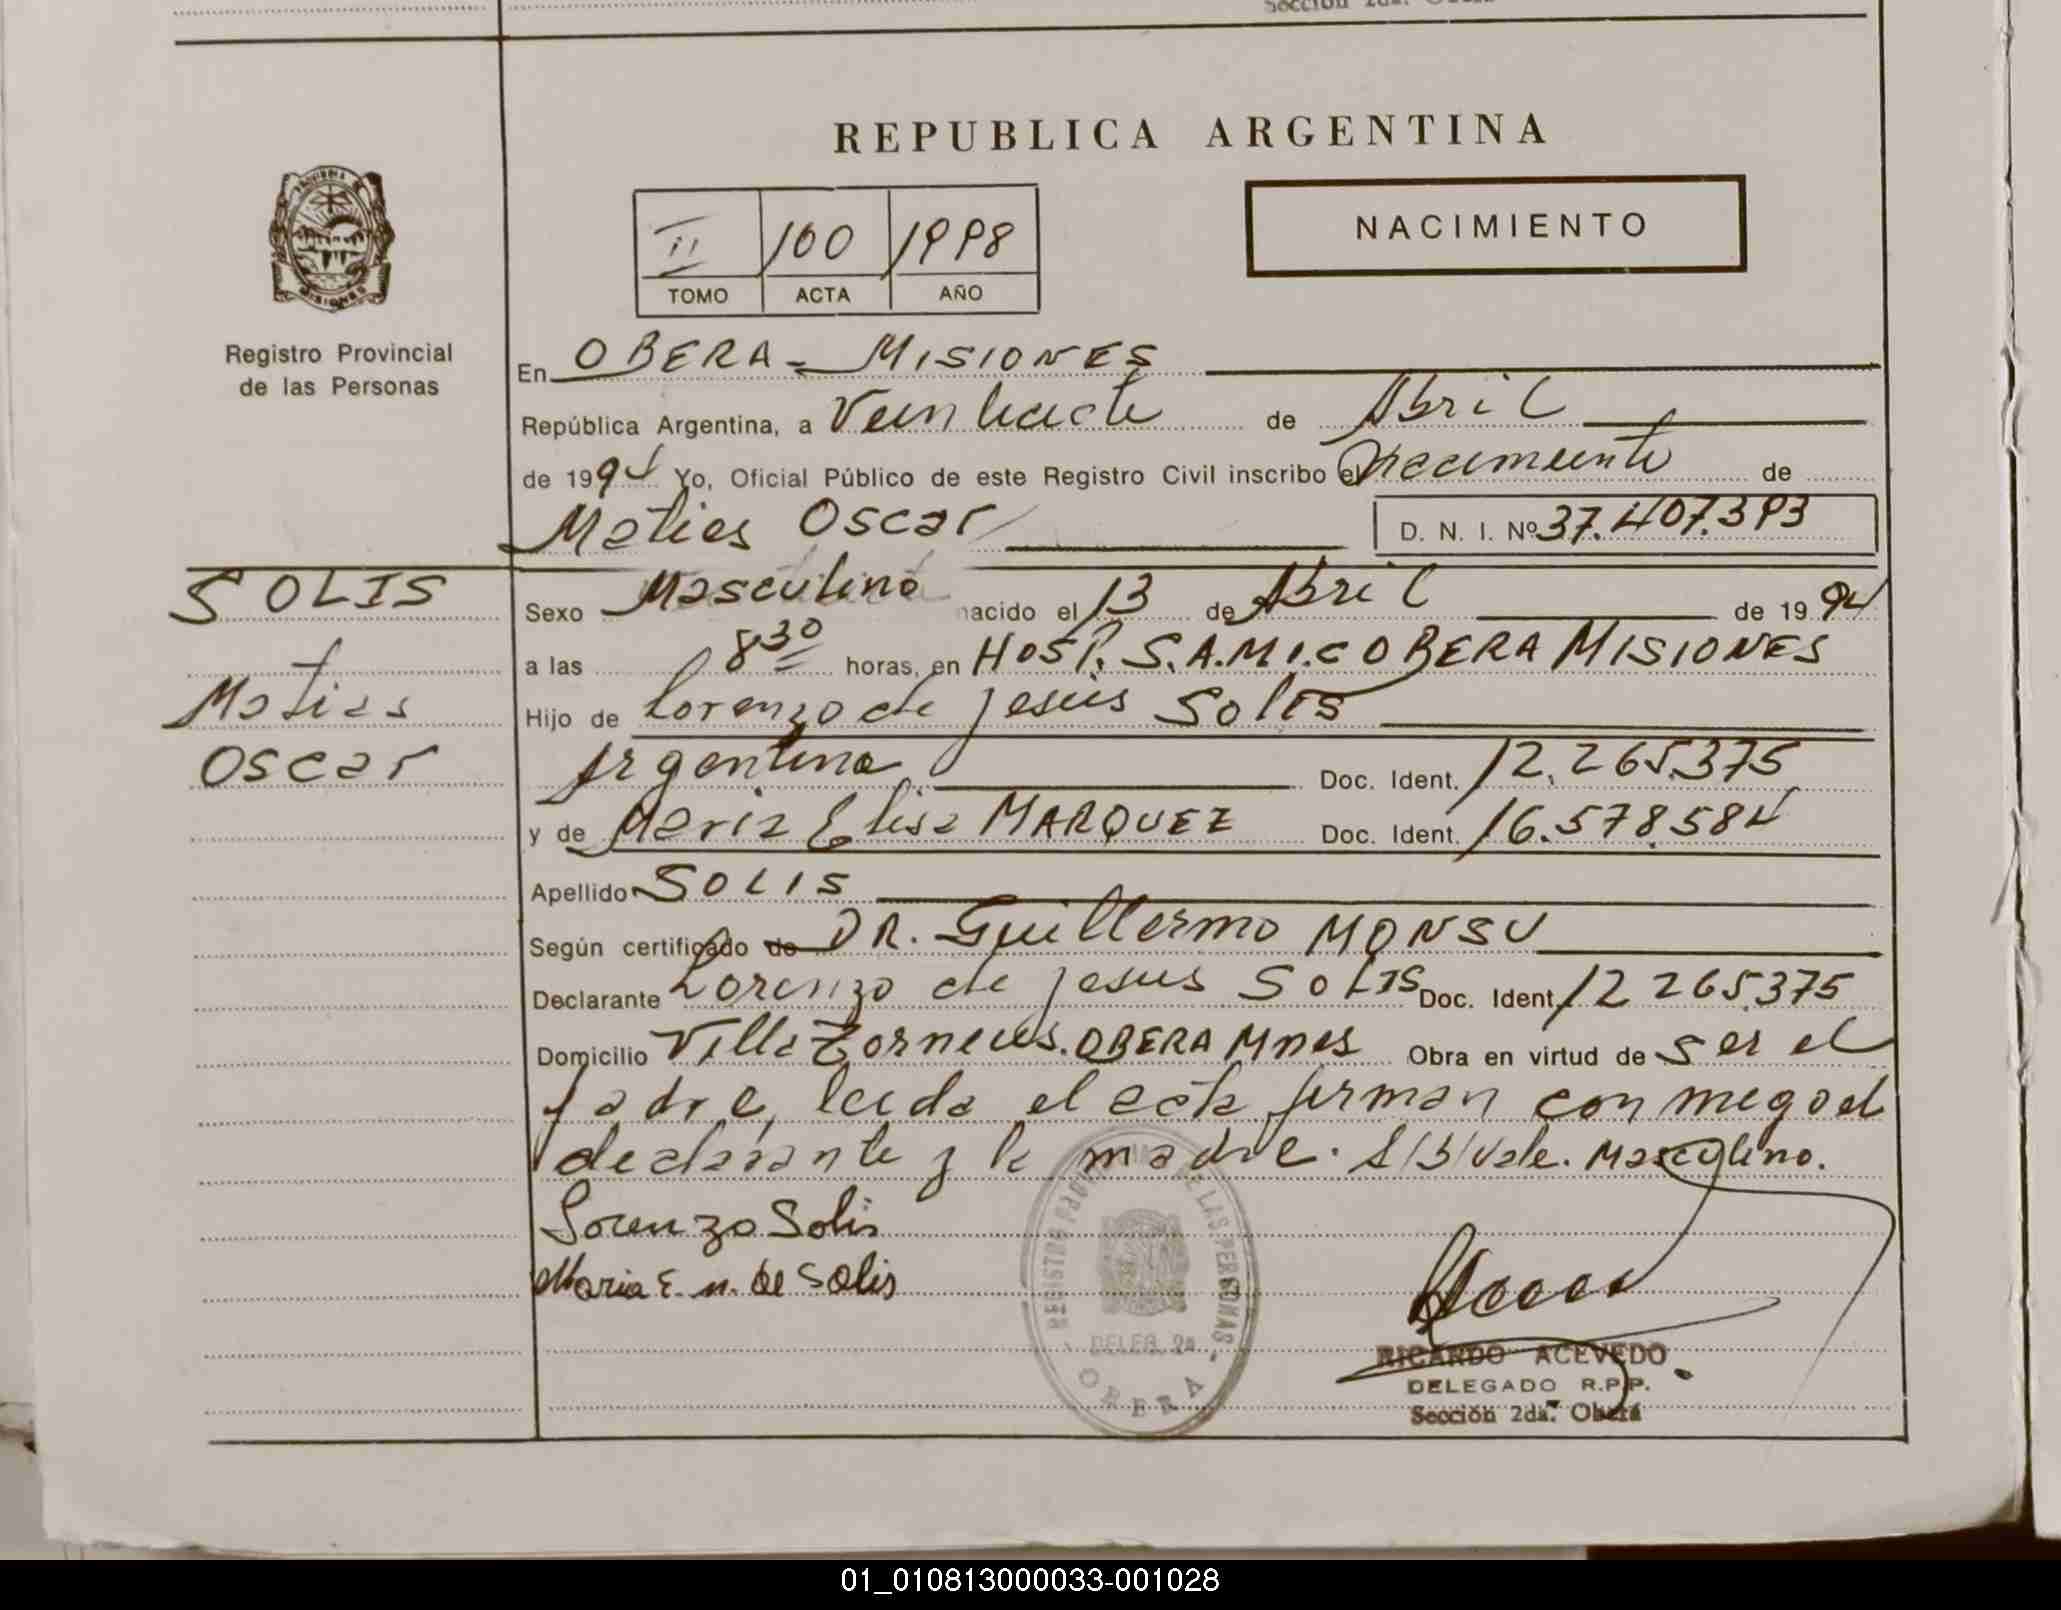 Sección 2da. Oberá
REPUBLICA ARGENTINA
NACIMIENTO
II 100 1998
TOMO ACTA AÑO
Registro Provincial
de las Personas
En OBERA - MISIONES
República Argentina, a Veintisiete de Abril
de 1994 Yo, Oficial Público de este Registro Civil inscribo el Nacimiento de
Matias Oscar D. N. I. Nº 37.407.393
SOLIS
Matias
Oscar
Sexo Masculino nacido el 13 de Abril de 1994
a las 8 30 horas, en HOSP. S.A.M.I.C OBERA MISIONES
Hijo de Lorenzo de Jesus Solis
Argentina Doc. Ident. 12.265.375
y de Maria Elisa MARQUEZ Doc. Ident. 16.578.584
Apellido SOLIS
Según certificado de DR. Guillermo MONSU
Declarante Lorenzo de Jesus SOLIS Doc. Ident. 12 265.375
Domicilio Villa OBERA Mnes Obra en virtud de ser el
padre, leida el acta firman conmigo el
declarante y la madre. S/B/ Vale. Masculino.
Lorenzo Solis
Maria E. M. de Solis
REGISTRO PROVINCIAL DE LAS PERSONAS
DELEG. 2a
OBERA
RICARDO ACEVEDO
DELEGADO R.P.P.
Sección 2da. Oberá
01_010813000033-001028